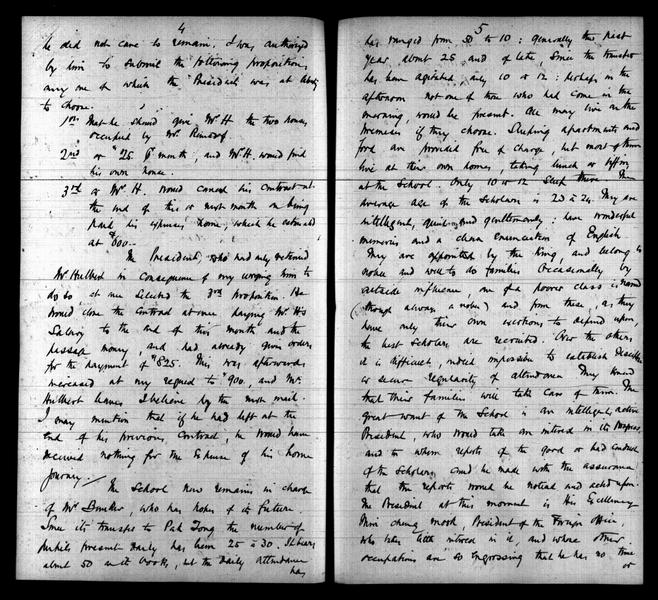 4
he did not care to remain. I was authorized
by him to submit the following propositions,
any one of which the President was at liberty
to choose.
1st That he should give Mr H. the two houses
occupied by Mr.
2nd or $25 month, and Mr H. would find
his own house.
3rd or Mr H. would cancel his contract at
the end of this or next month on being
paid his expenses home, which he estimated
at $600.-
The President, who had only retained
Mr Hulbert in consequence of my urging him to
do so, at once selected the 3rd proposition. He
would close the contract at once paying Mr H's
Salary to the end of this month and the
passage money, and had already given orders
for the payment of $825. This was afterwards
increased at my request to $900, and Mr.
Hulbert leaves I believe by the next mail.
I may mention that if he had left at the
end of his previous contract, he would have
received nothing for the expense of his home
journey.
The School now remains in charge
of Mr Bunker, who has hopes of its future.
Since its transfer to Pak Tong the number of
pupils present daily has been 25 to 30. It bears
about 50 on its books, but the daily attendance
has
5
has ranged from 50 to 10: generally the past
year about 25 and of late, since the transfer
has been agitated, only 10 or 12: perhaps in the
afternoon not one of those who had come in the
morning, would be present. All may live on the
premises if they choose. Sleeping apartments and
food are provided free of charge, but most of them
live at their own homes, taking lunch or tiffin
at the School. Only 10 or 12 sleep there. The
average age of the Scholars is 23 to 24. They are
intelligent, quiet and gentlemanly: have wonderful
memories and a clear enunciation of English.
They are appointed by the King, and belong to
nobles and well to do families. Occasionally by
outside influence one of a poorer class is named
(though always a noble) and from these, as they
have only their own exertions to depend upon,
the best scholars are recruited. Over the others
it is difficult, indeed impossible to establish discipline
or secure regularity of attendance. They know
that their families will take care of them. The
great want of the School is an intelligent, active
President, who would take an interest in its progress,
and to whom reports of the good or bad conduct
of the Scholars could be made with the assurance
that the reports would be noticed and acted upon.
The President at this moment is His Excellency
Min Chong Mook, President of the Foreign Office,
who takes little interest in it, and whose other
occupations are so engrossing that he has no time
or